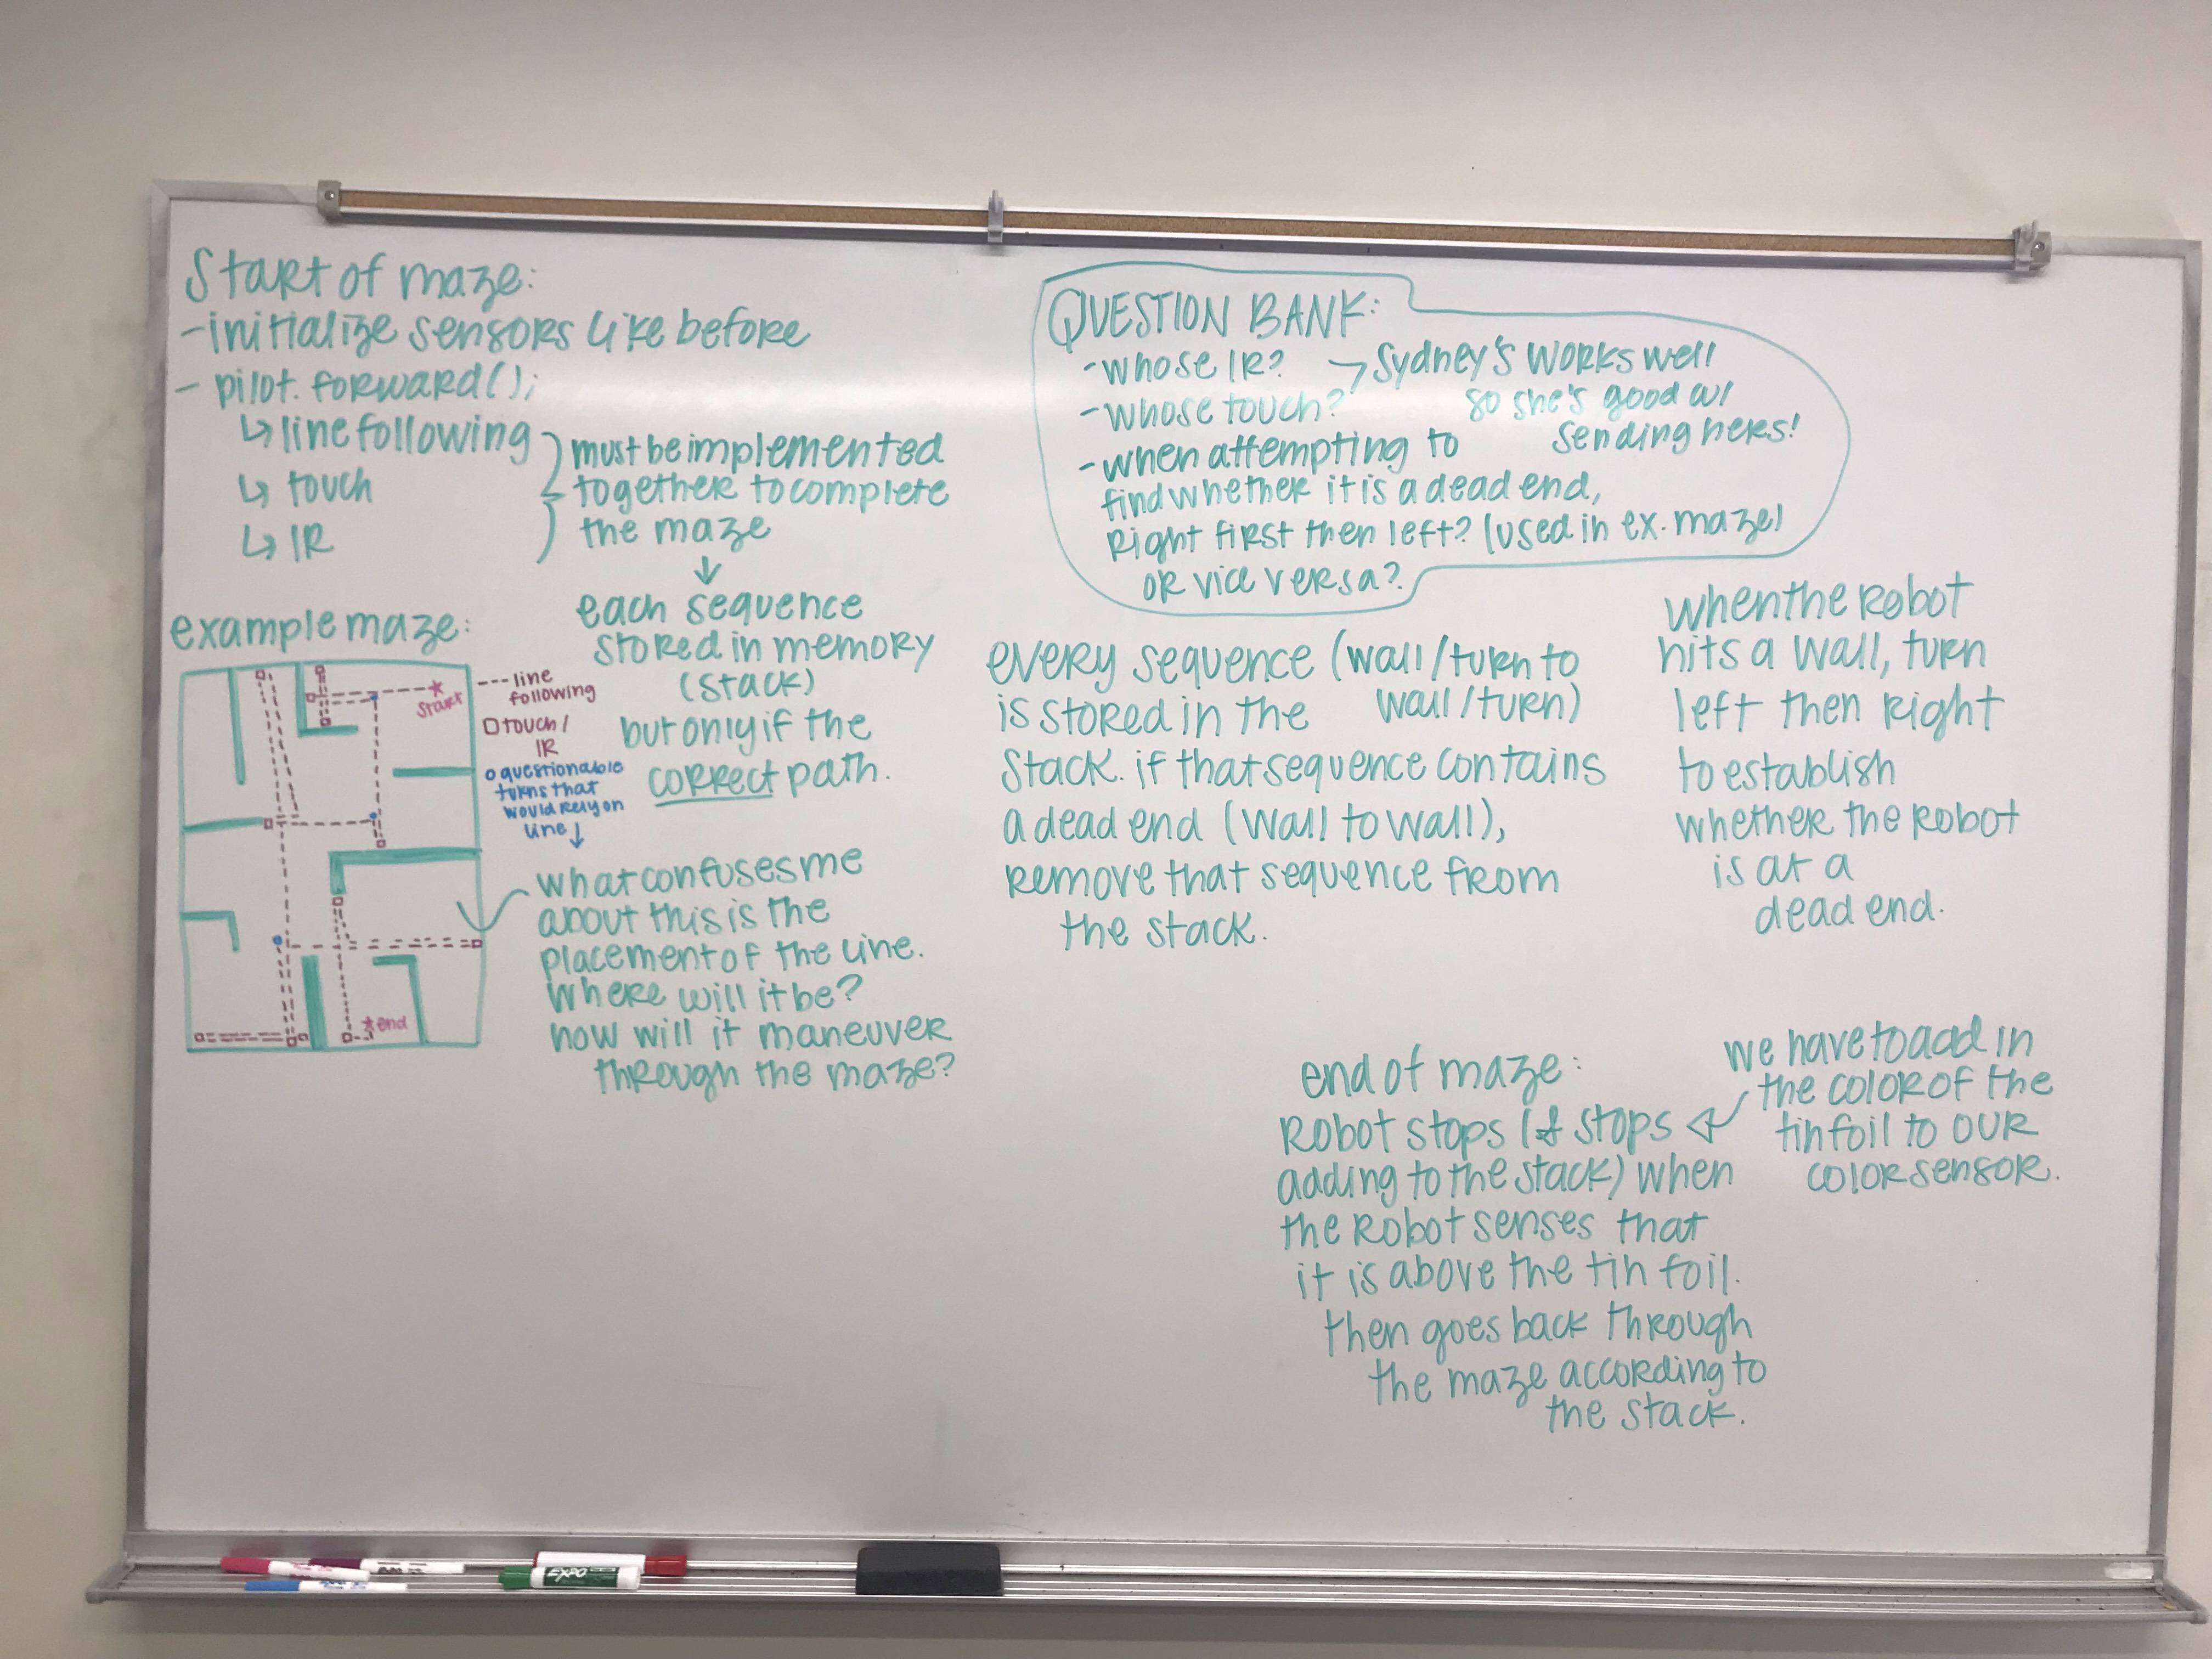 Start of maze:
- initialize sensors like before
- pilot.forward();
↳ line following
↳ touch
↳ IR
must be implemented
together to complete
the maze
↓
each sequence
stored in memory
(stack)
but only if the
correct path.
example maze:
start
end
--- line
following
□ touch/
IR
o questionable
turns that
would rely on
line ↓
what confuses me
about this is the
placement of the line.
where will it be?
how will it maneuver
through the maze?
QUESTION BANK:
- whose IR? → Sydney's works well
so she's good w/
sending hers!
- whose touch?
- when attempting to
find whether it is a dead end,
right first then left? (used in ex. maze)
or vice versa?
every sequence (wall/turn to
wall/turn)
is stored in the
stack. if that sequence contains
a dead end (wall to wall),
remove that sequence from
the stack.
when the robot
hits a wall, turn
left then right
to establish
whether the robot
is at a
dead end.
end of maze:
robot stops (& stops
adding to the stack) when
the robot senses that
it is above the tin foil.
then goes back through
the maze according to
the stack.
we have to add in
the color of the
tin foil to OUR
color sensor.
EXPO